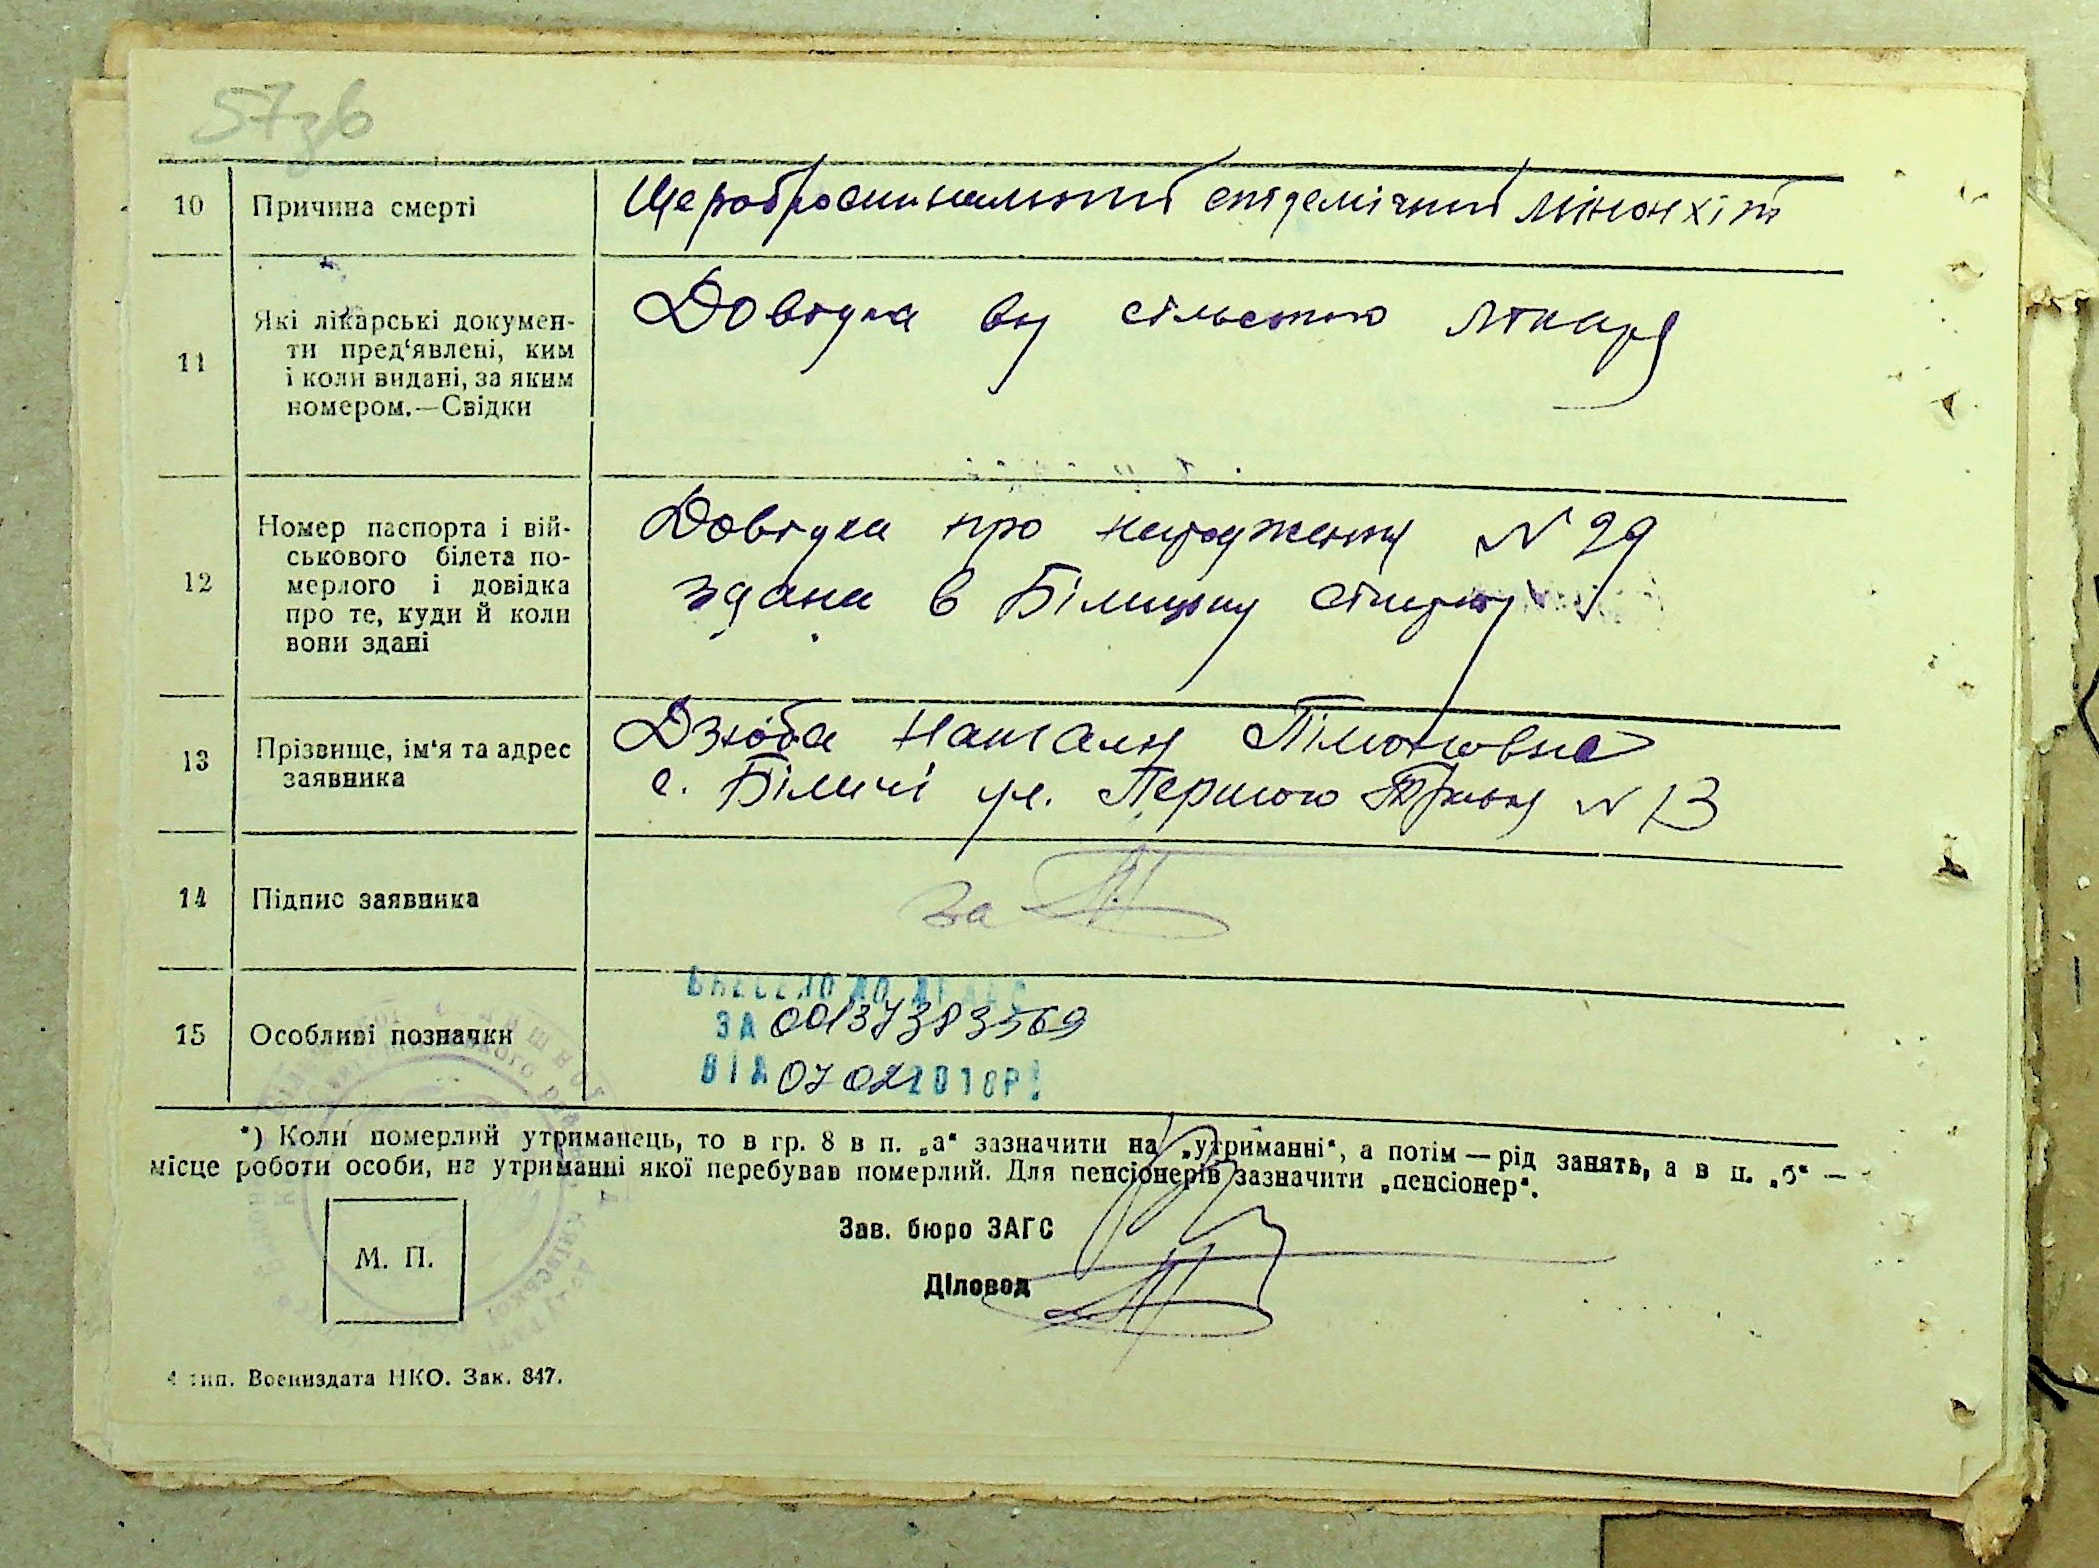 57зв
10 Причина смерті Церобросшинальний епідемічний мінонхіт
11 Які лікарські докумен-
ти пред'явлені, ким
і коли видані, за яким
номером.—Свідки
Довідка від сільского лікаря
12 Номер паспорта і вій-
ськового білета по-
мерлого і довідка
про те, куди й коли
вони здані
Довідка про народження N 29
здана в Білицьку
13 Прізвище, ім'я та адрес
заявника
Дзюба Наталя
с. Біличі ул. Першого N 13
14 Підпис заявника за
15 Особливі позначки
ВНЕСЕНО ДО ДРАЦС
ЗА 00137383569
ВІД 07 02 2018Р.
*) Коли померлий утриманець, то в гр. 8 в п. „а“ зазначити на „утриманні“, а потім — рід занять, а в п. „б“ —
місце роботи особи, на утриманні якої перебував померлий. Для пенсіонерів зазначити „пенсіонер“.
М. П.
Зав. бюро ЗАГС
Діловод
4 тип. Воениздата НКО. Зак. 847.